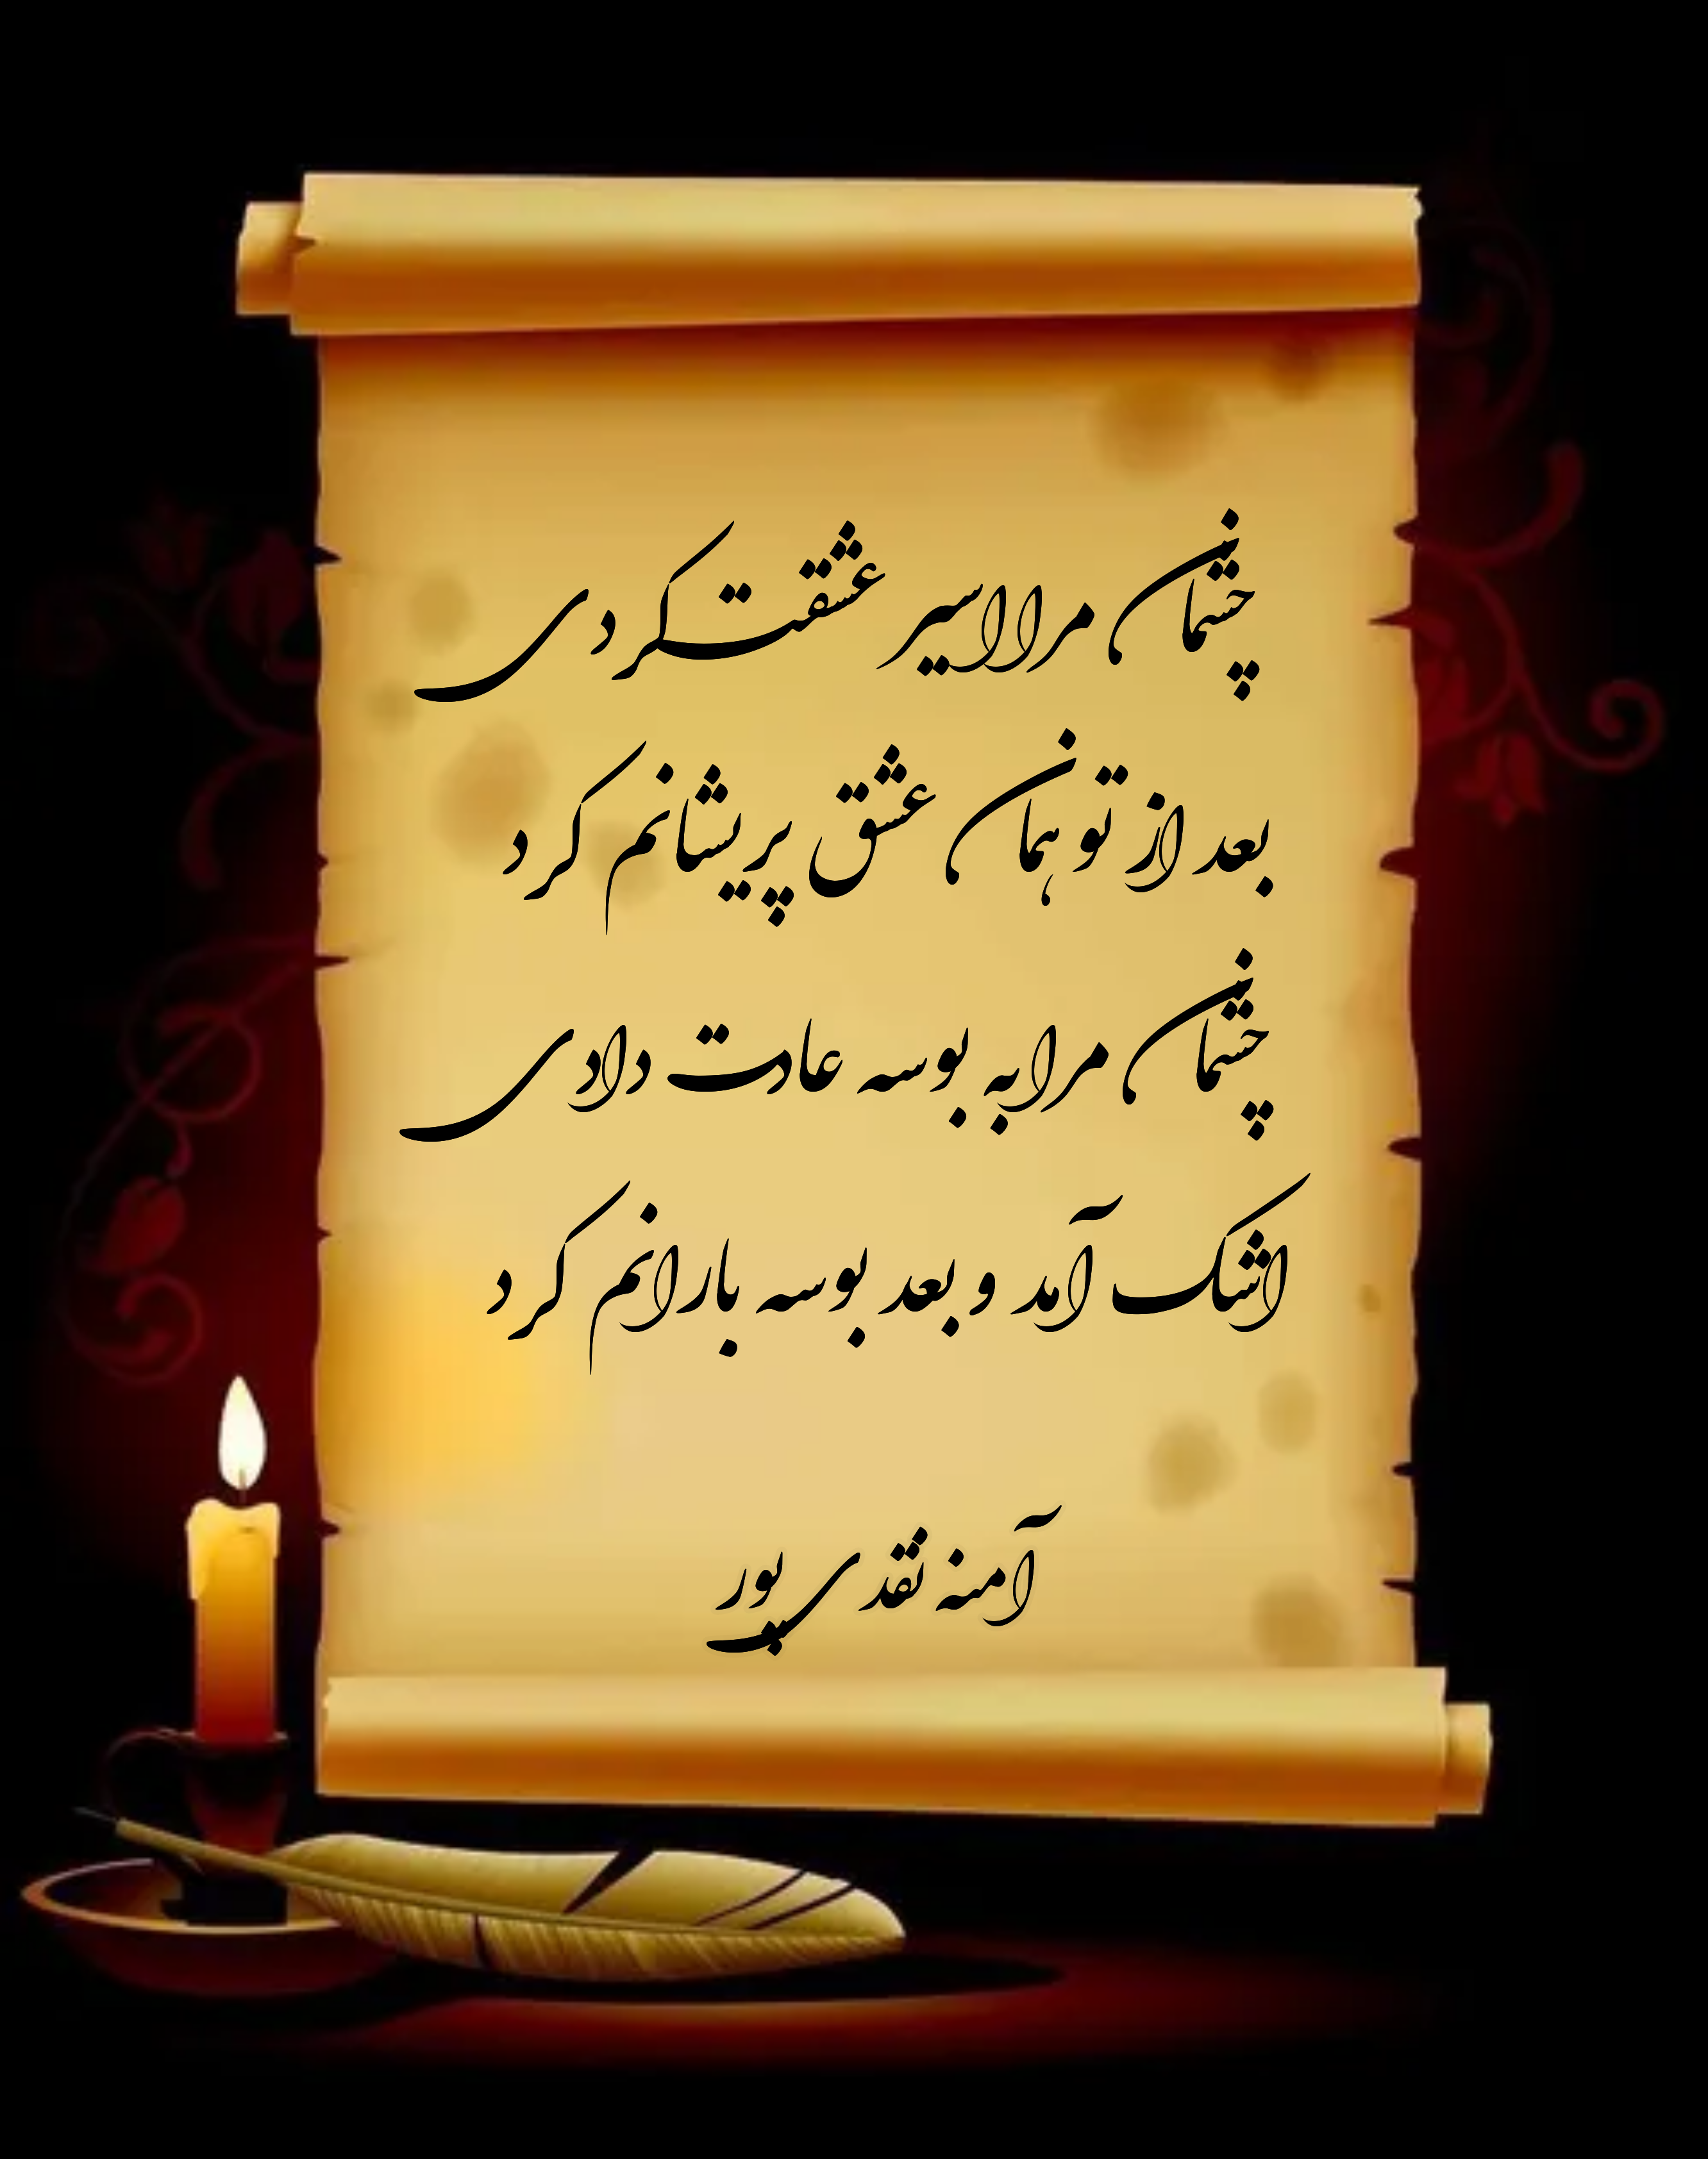 چشمان مرا اسیر عشقت کردی
بعد از تو همان عشق پریشانم کرد
چشمان مرا به بوسه عادت دادی
اشک آمد و بعد بوسه بارانم کرد
آمنه نقدی پور